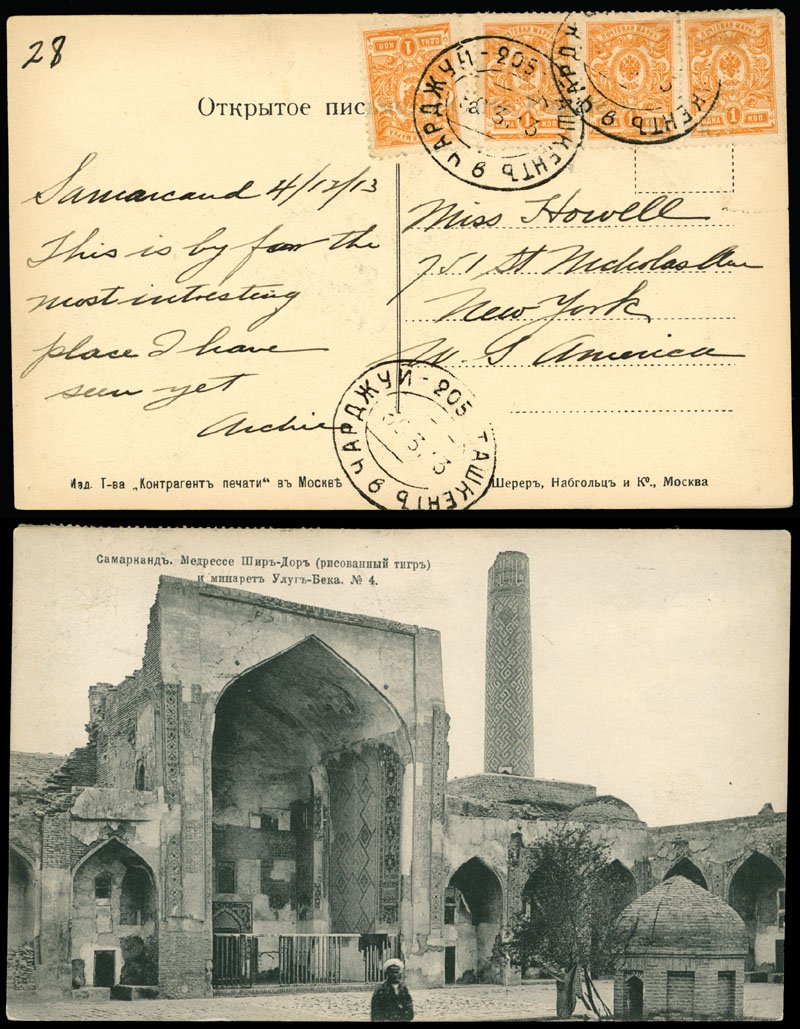 28
Открытое пис
ЧАРДЖУЙ - 205
ТАШКЕНТЪ
Samarcand 4/12/13
This is by far the
most intresting
place I have
seen yet
Archie
Miss Howell
751 St Nicholas Ave
New York
U S America
ЧАРДЖУЙ - 205
ТАШКЕНТЪ
Изд. Т-ва „Контрагентъ печати“ въ Москвѣ
Шереръ, Набгольцъ и Ко., Москва
Самаркандъ. Медрессе Ширъ-Доръ (рисованный тигръ)
и минаретъ Улугъ-Бека. № 4.